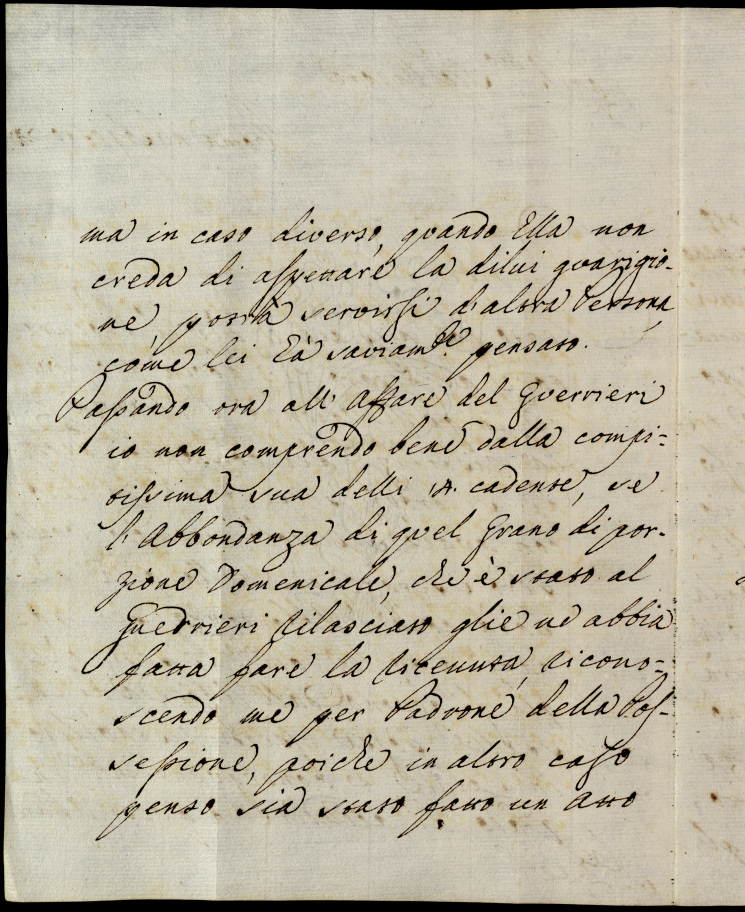 ma in caso diverso, quando Ella non
creda di aspettare la dilui guarigio-
ne, potrà servirsi d'altra Persona,
come lei Eà saviam.te pensato.
Passando ora all' Affare del Guerrieri
io non comprendo bene dalla compi-
tissima sua delli 14. cadente, se
l'Abbondanza di quel Grano di por-
zione Domenicale, che è stato al
Guerrieri rilasciato glie ne abbia
fatta fare la ricevuta, ricono-
scendo me per Padrone della Pos-
sessione, poiche in altro caso
penso sia stato fatto un Atto